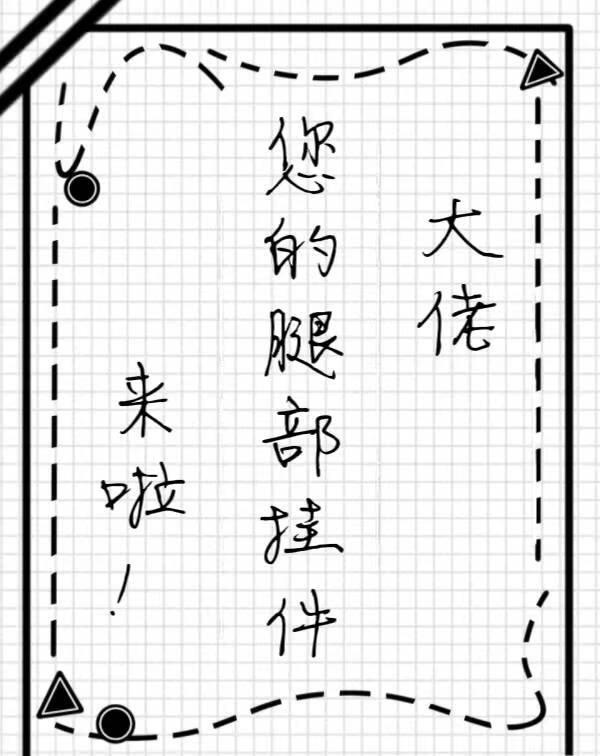 大佬
您的腿部挂件
来啦！